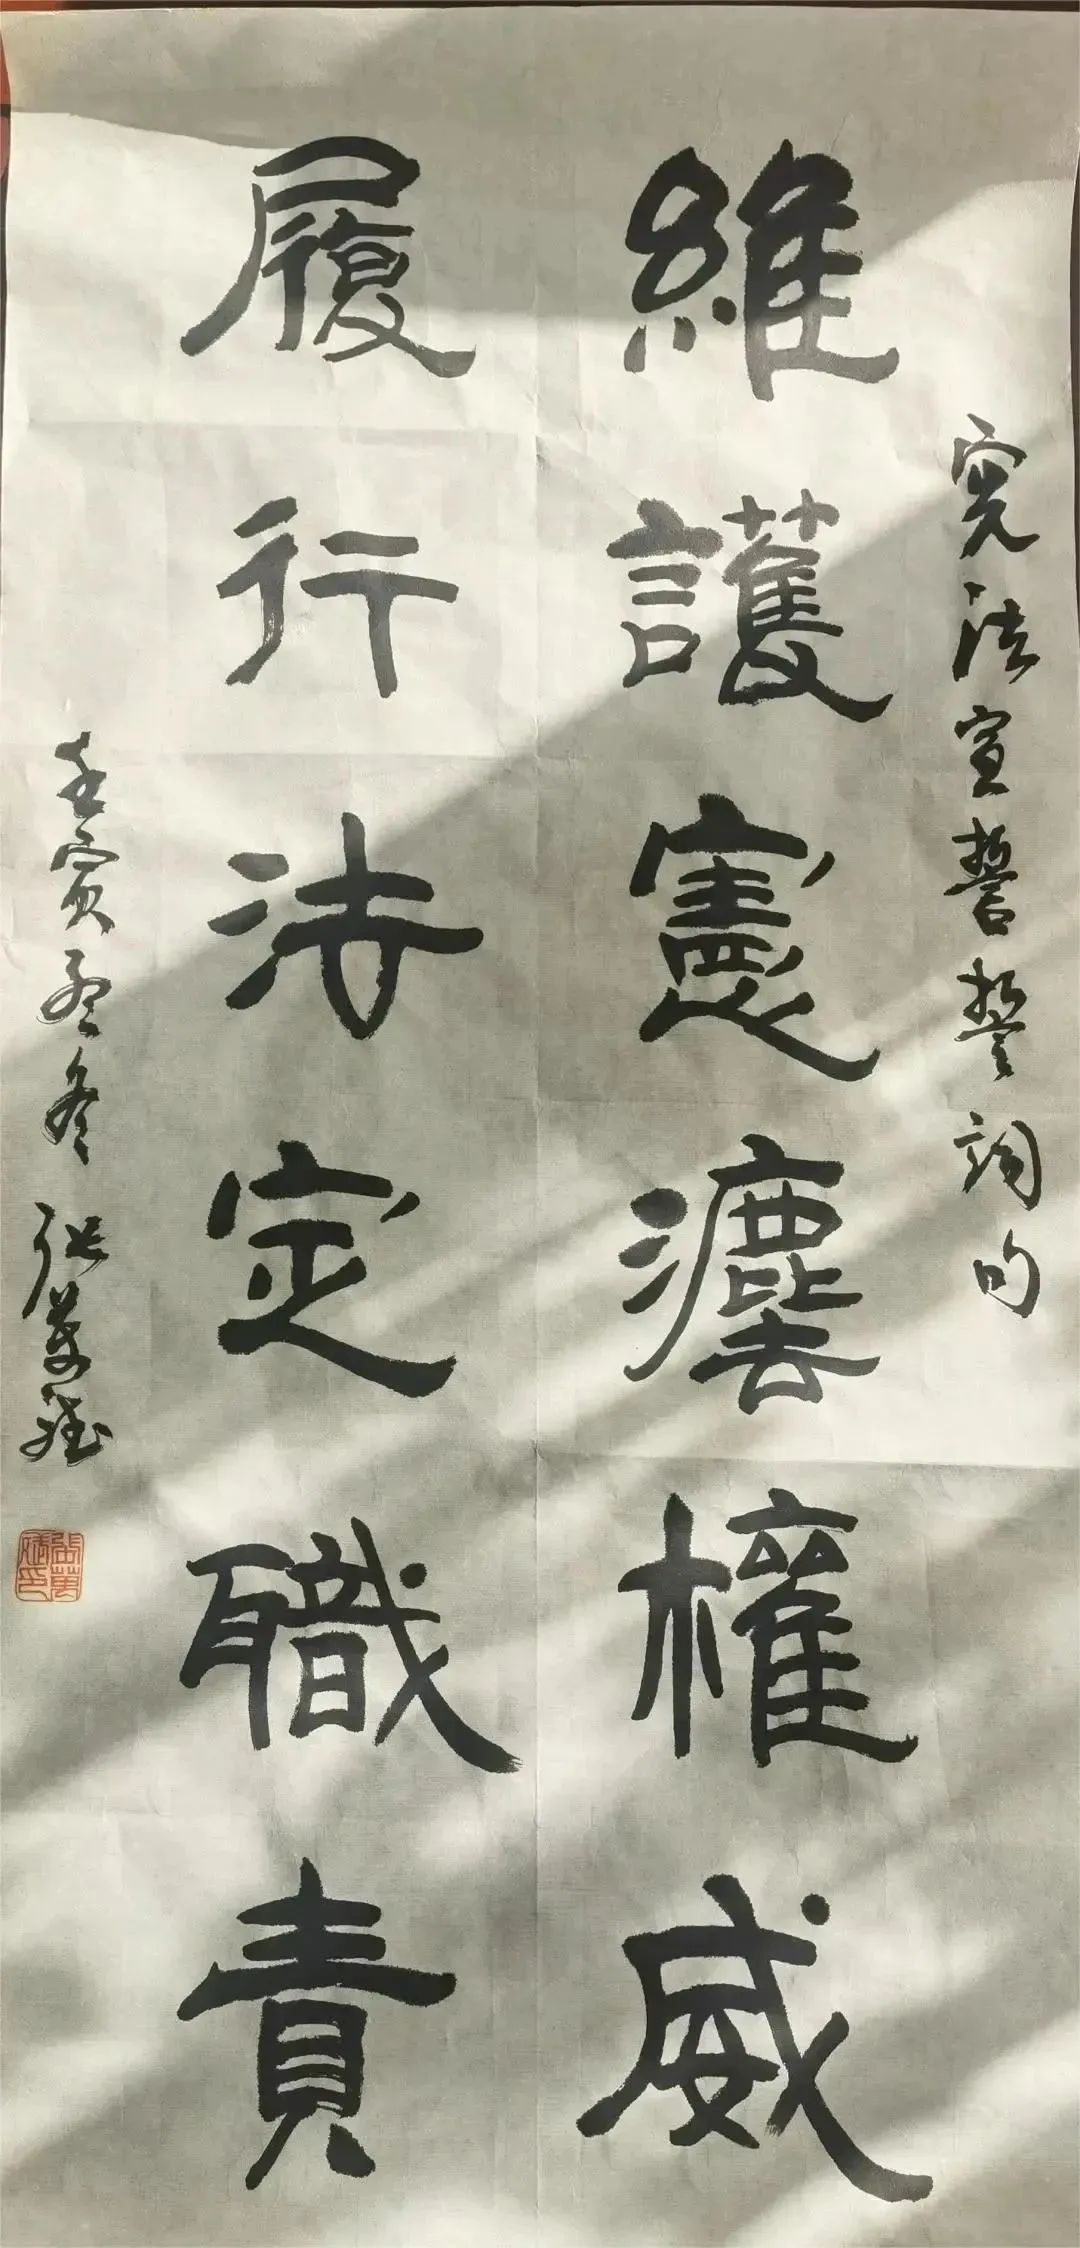 憲法宣誓誓詞句
維護憲灋權威
履行法定職責
壬寅孟冬 張萬